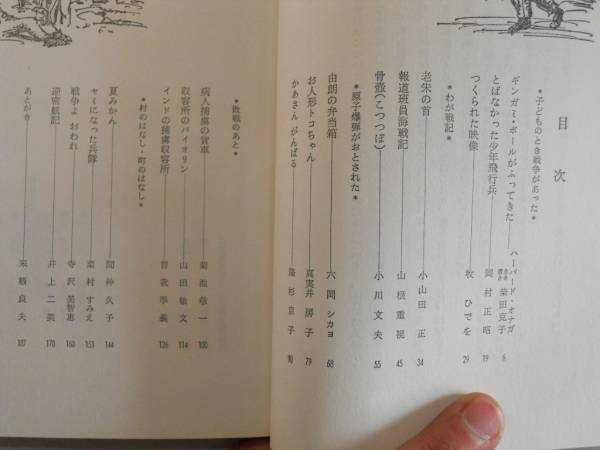 目次
＊子どものとき戦争があった＊
ギンガミ・ボールがふってきた ハーバード・オナガ 柴田克子 6
とばなかった少年飛行兵 岡村正昭 19
つくられた映像 牧ひでを 29
＊わが戦記＊
老朱の首 小山田正 34
報道班員海戦記 山根重視 45
骨壺（こつつぼ） 小川文夫 55
＊原子爆弾がおとされた＊
由朗の弁当箱 六岡シカヨ 68
お人形トコちゃん 真実井房子 79
かあさん がんばる 京子 90
＊敗戦のあと＊
病人捕虜の貨車 菊池敬一 100
収容所のバイオリン 山田敏文 114
インドの捕虜収容所 曽我孝義 126
＊村のはなし・町のはなし＊
夏みかん 間仲久子 144
セミになった兵隊 葉村すみえ 153
戦争よ おわれ 寺沢美智恵 160
逆密航記 井上二美 170
あとがき 来栖良夫 187